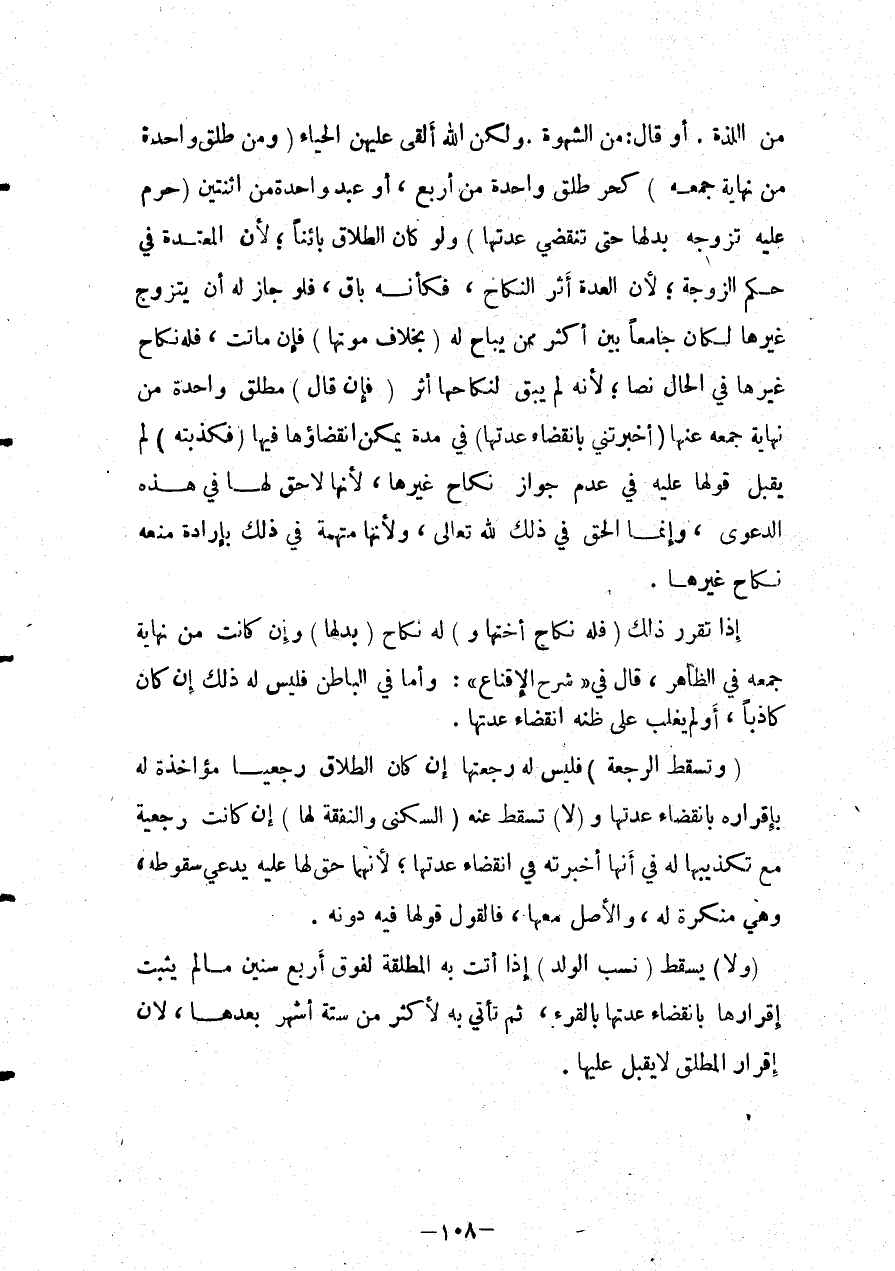 من اللذة . أو قال : من الشهوة . ولكن الله ألقى عليهن الحياء ( ومن طلق واحدة
من نهاية جمعـه ) كحر طلق واحدة من أربع ، أو عبد واحدة من اثنتين ( حرم
عليه تزوجه بدلها حتى تنقضي عدتها ) ولو كان الطلاق بائناً ؛ لأن المعتـدة في
حـكم الزوجة ؛ لأن العدة أثر النكاح ، فكأنـه باق ، فلو جاز له أن يتزوج
غيرها لـكان جامعاً بين أكثر ممن يباح له ( بخلاف موتها ) فإن ماتت ، فله نكاح
غيرها في الحال نصا ؛ لأنه لم يبق لنكاحها أثر ( فإن قال ) مطلق واحدة من
نهاية جمعه عنها ( أخبرتني بانقضاء عدتها ) في مدة يمكن انقضاؤها فيها ( فكذبته ) لم
يقبل قولها عليه في عدم جواز نكاح غيرها ، لأنها لا حق لهـا في هـذه
الدعوى ، وإنمـا الحق في ذلك لله تعالى ، ولأنها متهمة في ذلك بإرادة منعه
نـكاح غيرهـا .
إذا تقرر ذلك ( فله نكاح أختها و ) له نكاح ( بدلها ) وإن كانت من نهاية
جمعه في الظاهر ، قال في « شرح الإقناع » : وأما في الباطن فليس له ذلك إن كان
كاذباً ، أو لم يغلب على ظنه انقضاء عدتها .
( وتسقط الرجعة ) فليس له رجعتها إن كان الطلاق رجعيـا مؤاخذة له
بإقراره بانقضاء عدتها و ( لا ) تسقط عنه ( السكنى والنفقة لها ) إن كانت رجعية
مع تكذيبها له في أنها أخبرته في انقضاء عدتها ؛ لأنها حق لها عليه يدعي سقوطه ،
وهي منكرة له ، والأصل معها ، فالقول قولها فيه دونه .
( ولا ) يسقط ( نسب الولد ) إذا أتت به المطلقة لفوق أربع سنين مـالم يثبت
إقرارها بانقضاء عدتها بالقرء ، ثم تأتي به لأكثر من ستة أشهر بعدهـا ، لان
إقرار المطلق لا يقبل عليها .
– ١٠٨ –